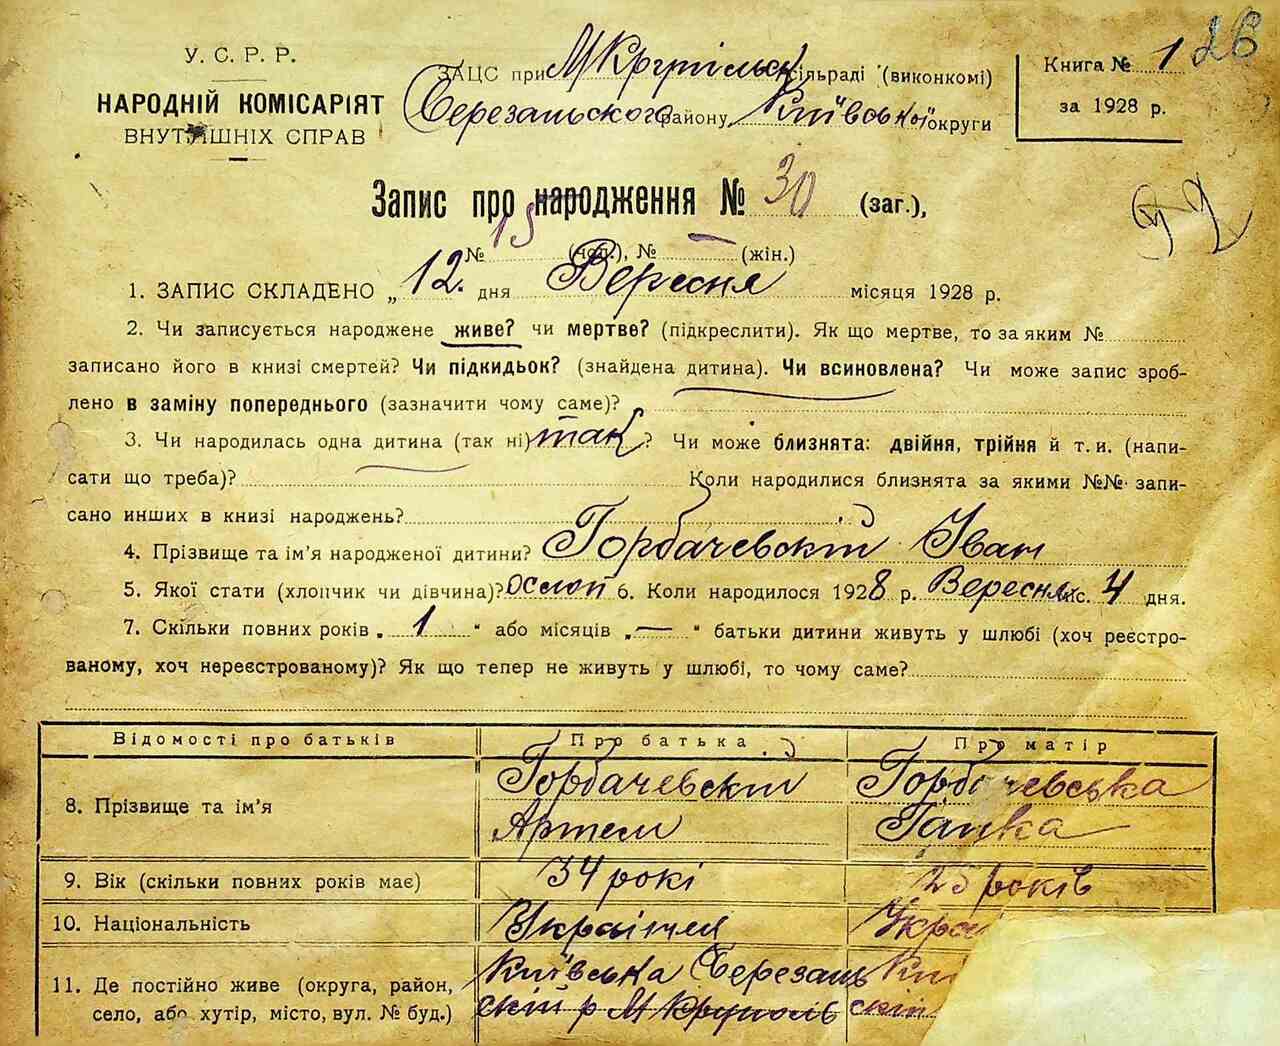 У. С. Р. Р.
НАРОДНІЙ КОМІСАРІЯТ
ВНУТРІШНІХ СПРАВ
ЗАЦС при М Крупільск сільраді (виконкомі)
Березанського району Київської округи
Книга № 1
за 1928 р.
26
Запис про народження № 30 (заг.),
№ 15 (чол.), № — (жін.)
1. ЗАПИС СКЛАДЕНО „ 12. дня Вересня місяця 1928 р.
2. Чи записується народжене живе? чи мертве? (підкреслити). Як що мертве, то за яким №
записано його в книзі смертей? Чи підкидьок? (знайдена дитина). Чи всиновлена? Чи може запис зроб-
лено в заміну попереднього (зазначити чому саме)?
3. Чи народилась одна дитина (так ні) так ? Чи може близнята: двійня, трійня й т. и. (напи-
сати що треба)? Коли народилися близнята за якими №№ запи-
сано инших в книзі народжень?
4. Прізвище та ім'я народженої дитини? Горбачевскій Іван
5. Якої стати (хлопчик чи дівчина)? 6. Коли народилося 1928 р. Вересня міс. 4 дня.
7. Скільки повних років „ 1 " або місяців „ — " батьки дитини живуть у шлюбі (хоч реєстро-
ваному, хоч нереєстрованому)? Як що тепер не живуть у шлюбі, то чому саме?
Відомості про батьків Про батька Про матір
8. Прізвище та ім'я Горбачевскій Горбачевська
Артем Ганка
9. Вік (скільки повних років має) 34 рокі 25 років
10. Національність Українця Укра
11. Де постійно живе (округа, район, Київська Березань Киї
село, або хутір, місто, вул. № буд.) скій р М Круполь скій